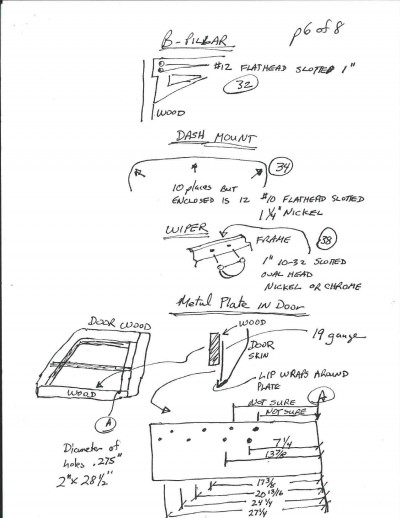 p6 of 8
B-PILLAR
#12 FLATHEAD SLOTTED 1"
32
WOOD
DASH MOUNT
34
10 places BUT
ENCLOSED IS 12
#10 FLATHEAD SLOTTED
1 1/4" NICKEL
WIPER
FRAME
38
1" 10-32 SLOTTED
OVAL HEAD
NICKEL OR CHROME
Metal Plate in Door
DOOR WOOD
WOOD
19 gauge
DOOR
SKIN
LIP WRAPS AROUND
PLATE
WOOD
A
A
NOT SURE
NOT SURE
Diameter of
holes .275"
2" x 28 1/2"
7 1/4
17 3/8
20 13/16
24 1/4
27 1/4